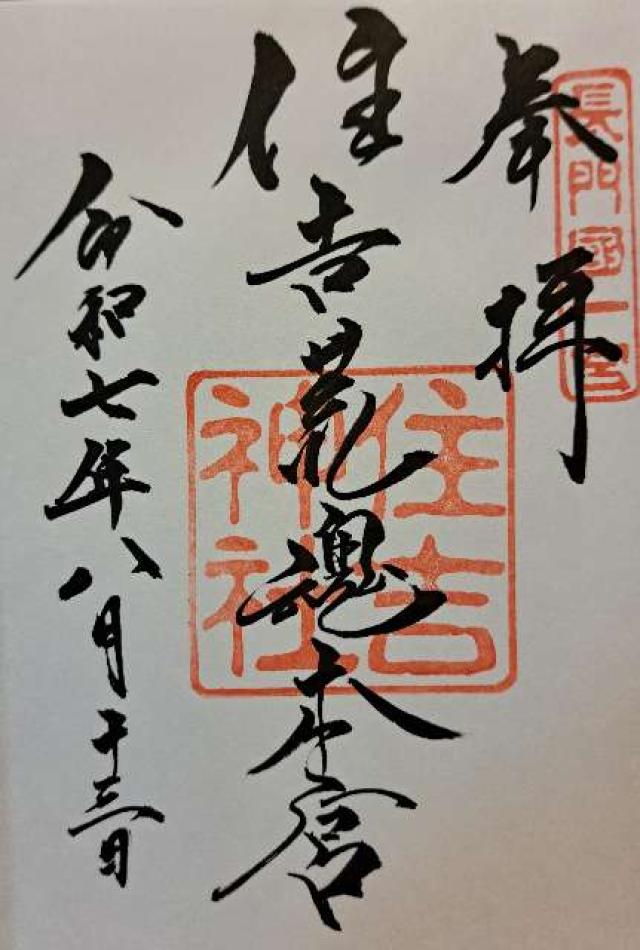 長門國一宮
奉拝
住吉荒魂本宮
住吉神社
令和七年八月十三日